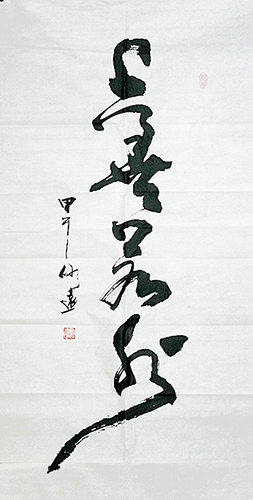 上善若水
甲午